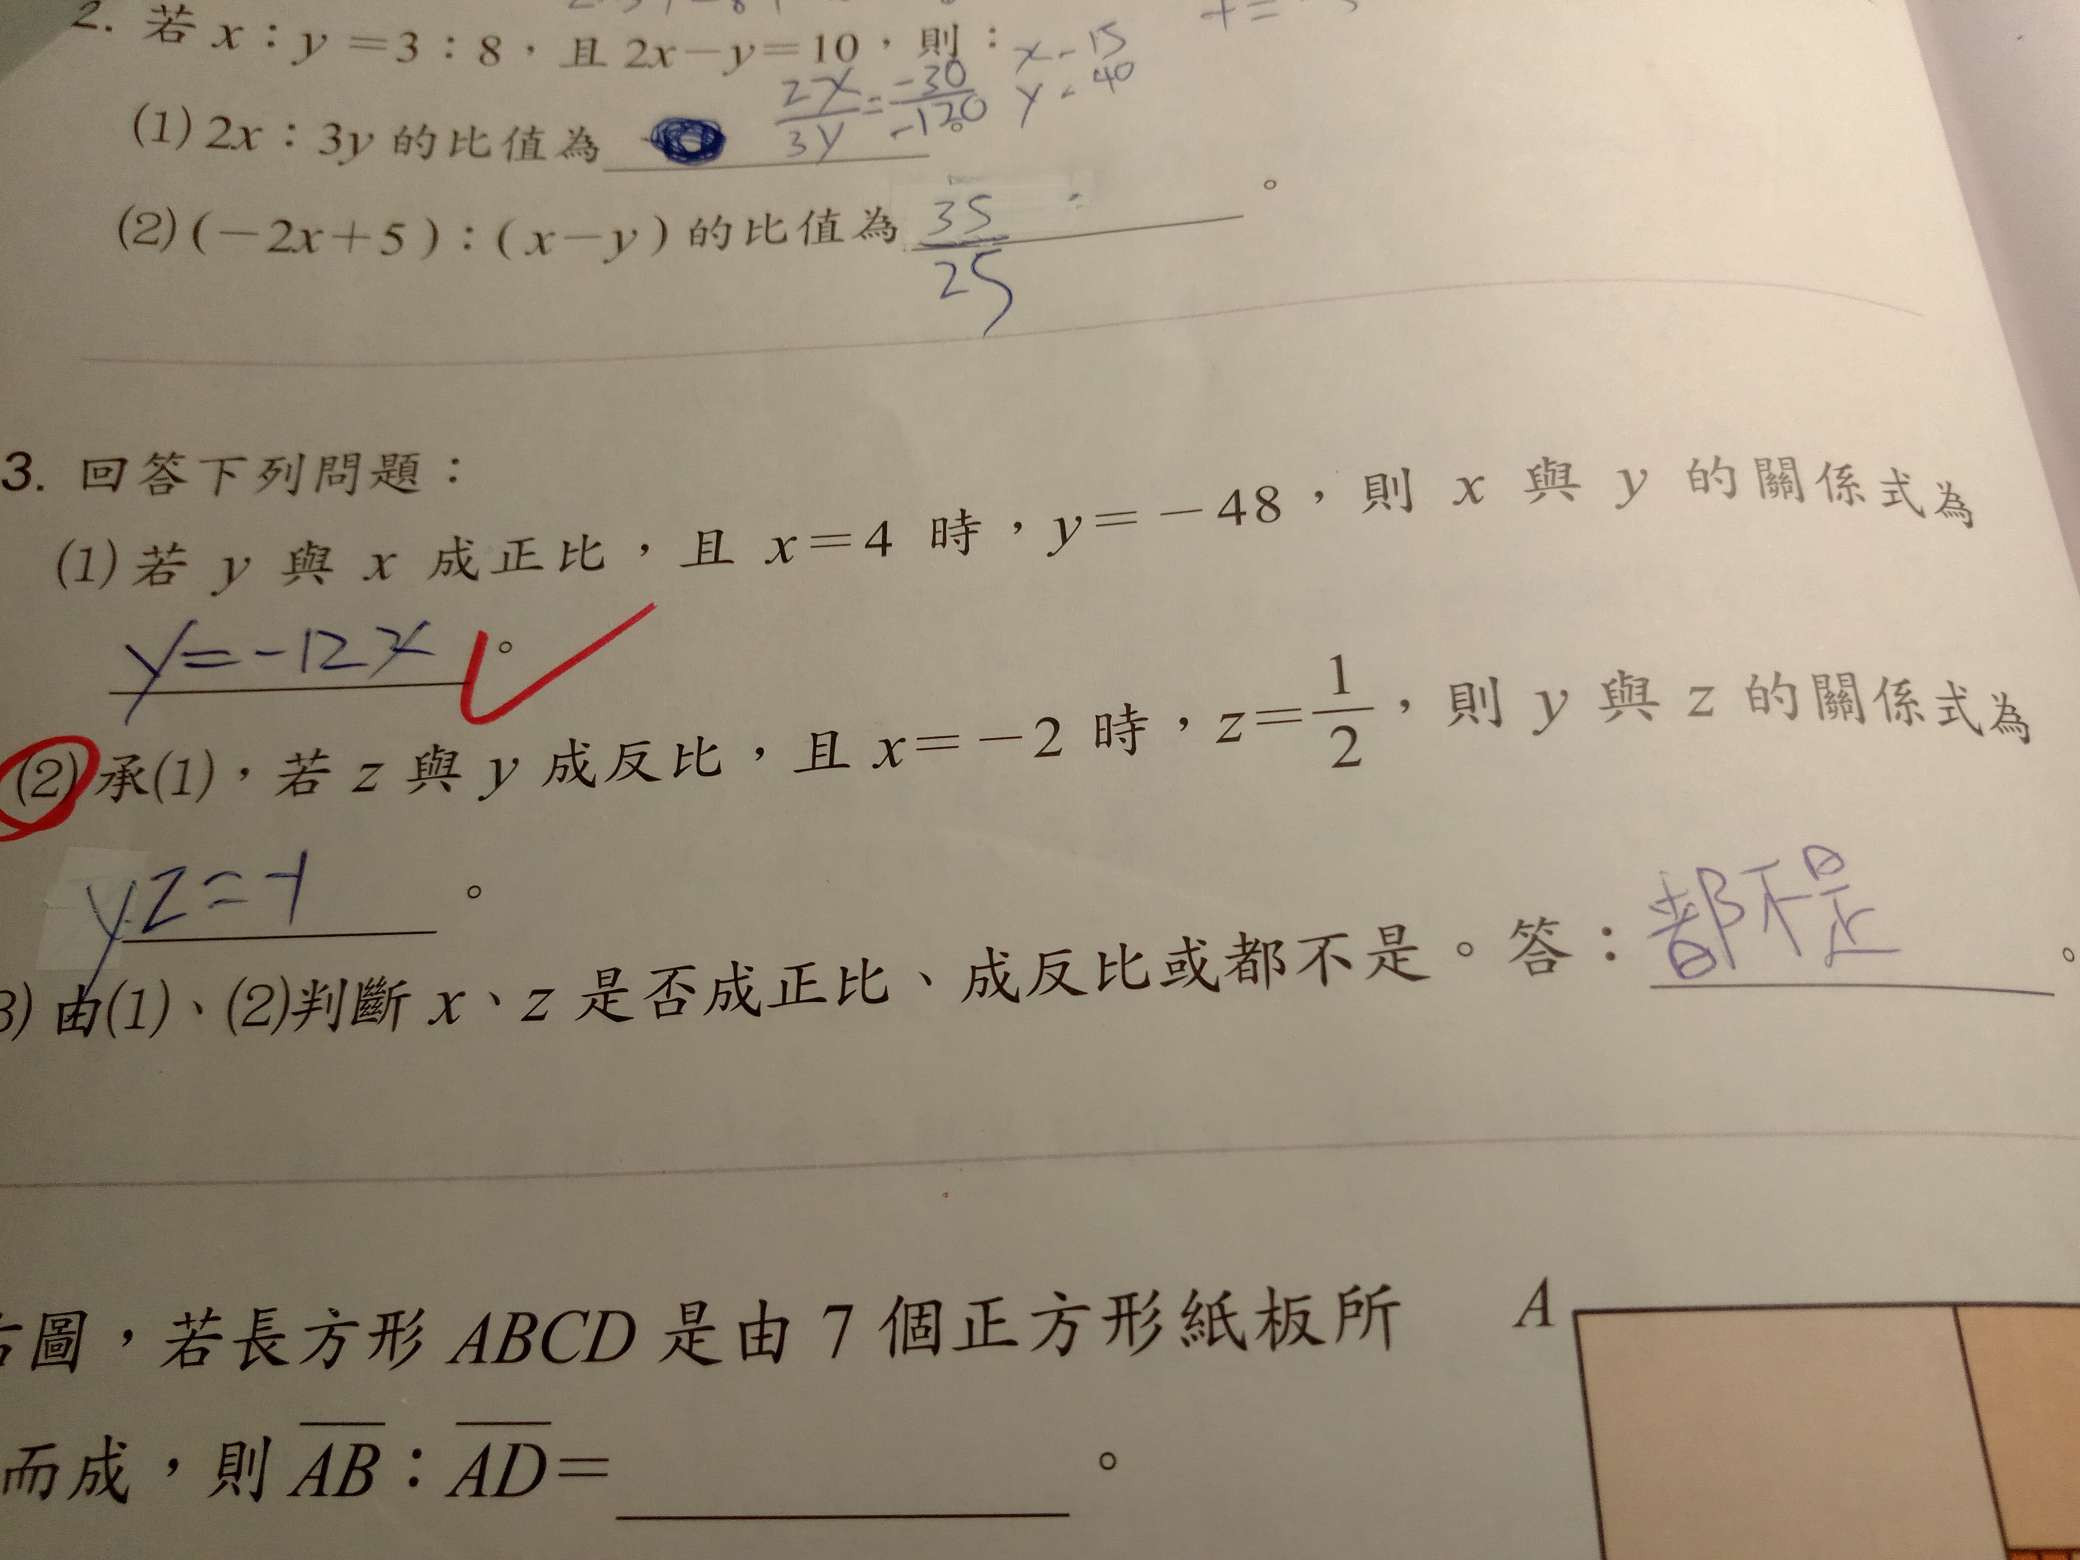 2. 若 x：y＝3：8，且 2x－y＝10，則： x - 15
y = 40
(1) 2x：3y 的比值為 2x/3y = -30/-120
(2) (－2x＋5)：(x－y) 的比值為 35/25 。
3. 回答下列問題：
(1) 若 y 與 x 成正比，且 x＝4 時，y＝－48，則 x 與 y 的關係式為
y=-12x 。
(2) 承(1)，若 z 與 y 成反比，且 x＝－2 時，z＝1/2，則 y 與 z 的關係式為
yz=-1 。
3) 由(1)、(2)判斷 x、z 是否成正比、成反比或都不是。答：都不是 。
圖，若長方形 ABCD 是由 7 個正方形紙板所
而成，則 AB：AD＝ 。
A